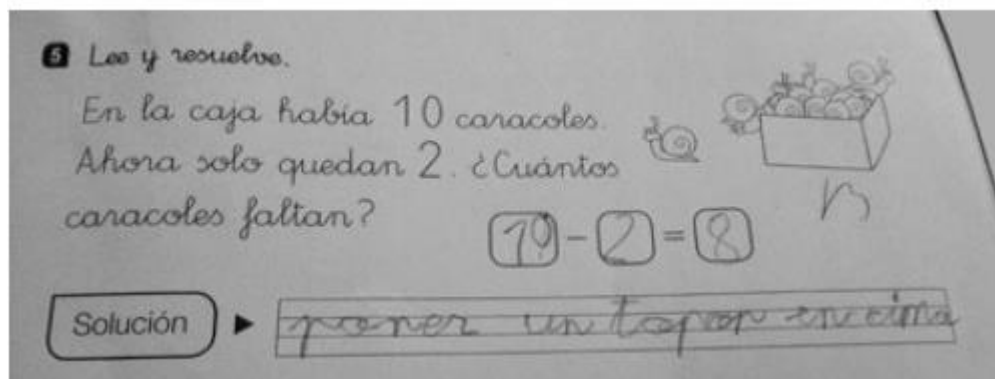 5 Lee y resuelve.
En la caja había 10 caracoles.
Ahora solo quedan 2. ¿Cuántos
caracoles faltan?
10 - 2 = 8
Solución ▶ poner un tapon encima